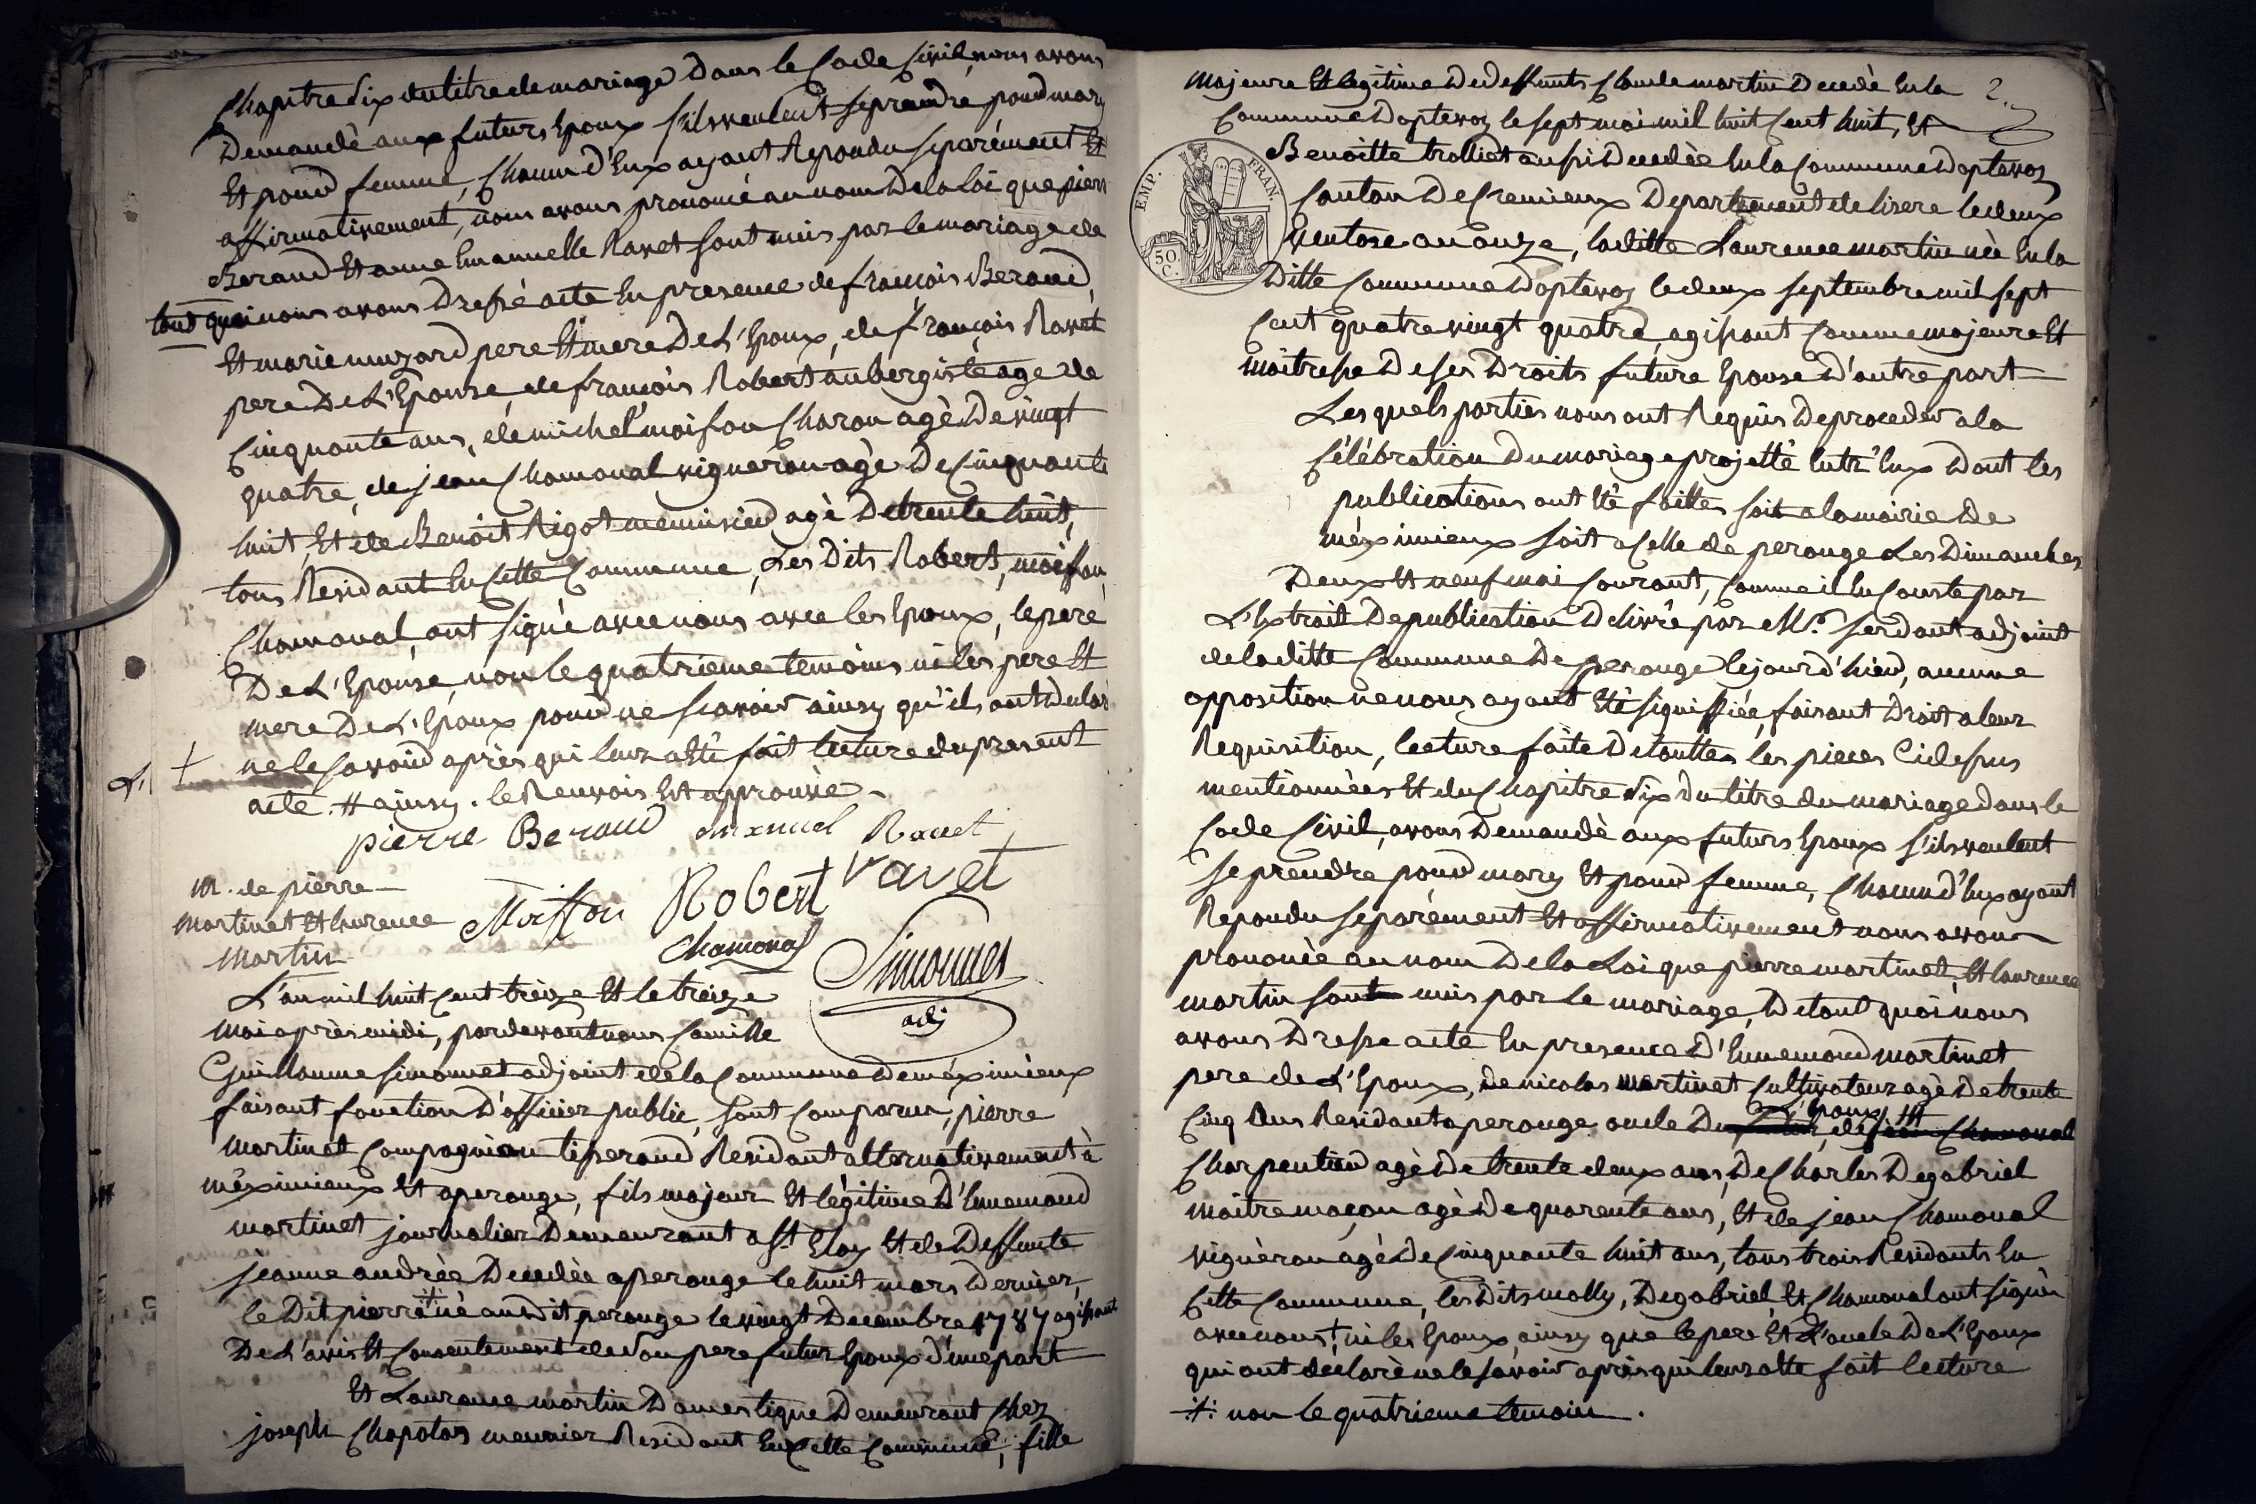 Chapitre six du titre de mariage dans le Code Civil, nous avons
Demandè aux futurs Epoux s'ils veulent se prendre pour mary
Et pour femme, Chacun d'Eux ayant Repondu separément Et
affirmativement, nous avons prononcé au nom De la Loi que pierre
Beraud Et anne Emanuelle Ravet sont unis par le mariage de
tout quoi nous avons Dressé acte En presence de francois Beraud,
Et marie muzard pere Et mere De L'Epoux, de françois Ravet
pere De L'Epouse, de francois Robert aubergiste age de
Cinquante ans, de michel moisson Charon agè De vingt
quatre, de jean Chamonal vigneron agè De Cinquante
huit, Et de Benoit Rigot menuisier agè De trente huit,
tous Residant En Cette Commune, Les Dits Robert, moisson
Chamonal, ont signé avec nous avec les Epoux, le pere
De L'Epouse, non le quatrieme temoins ni les pere Et
mere De L'Epoux pour ne scavoir ainsy qu'ils ont declaré
ne le savoir après qui leur a Eté fait lecture du present
acte. # ainsy. le Renvois Est approuvè
pierre Beraud emanuel Ravet
Moisson Robert ravet
Chamonal
Simonnet
adj
m. de pierre
martinet Et Laurence
martin
L'an mil huit Cent treize Et le treize
mai après midi, pardevant nous Camille
Guillaume Simonnet adjoint de la Commune De méximieux
faisant fonction D'officier public, sont Comparus, pierre
martinet Compagnion tisserand Residant alternativement à
méximieux Et a perouge, fils majeur Et légitime D'Ennemond
martinet journalier Demeurant a St. Eloy Et de Deffunte
jeanne andrèe Decedèe a perouge le huit mars Dernier,
le Dit pierre né au Dit perouge le vingt Decembre 1787 agissant
De L'avis Et Consentement de son pere futur Epoux d'une part
Et Laurance martin Domestique Demeurant Chez
joseph Chapotas meunier Residant En Cette Commune, fille
2
majeure Et légitime De deffunts Claude martin Decedè En la
Commune D'optevoz le sept mai mil huit Cent huit, Et
Benoitte trolliet aussi Decedée En la Commune D'optevoz
Canton De Cremieux Departement de lisere le deux
Ventose an onze, la ditte Laurence martin née En la
Ditte Commune D'optevoz le deux septembre mil sept
Cent quatre vingt quatre, agissant Comme majeure Et
maitresse De ses Droits future Epouse D'autre part
EMP. FRAN.
50 C.
Les quels parties nous ont Requis De proceder a la
Célébration Du mariage projetté Entr'Eux Dont les
publications ont Eté faittes soit a la mairie De
méximieux soit a Celle de perouge Les Dimanches
Deux Et neuf mai Courant, Comme il En Conste par
L'Extrait De publication Delivré par Mr. serdant adjoint
de la ditte Commune De perouge le jour d'hier, aucune
opposition ne nous ayant Eté signiffiée, faisant Droit a leur
Requisition, lecture faite De toutte les pieces Ci dessus
mentionnées Et du Chapitre six Du titre du mariage dans le
Code Civil, avons Demandè aux futurs Epoux s'ils veulent
se prendre pour mary Et pour femme, Chacun d'Eux ayant
Repondu separément Et affirmativement nous avons
prononcè au nom De la Loi que pierre martinet, Et laurence
martin sont unis par le mariage, De tout quoi nous
avons Dressé acte En presence D'Ennemond martinet
pere de L'Epoux, de nicolas martinet Cultivateur agè De trente
Cinq Ans Residant a perouge oncle De L'Epoux,
Charpentier agè De trente deux ans, De Charles Degabriel
maitre maçon agè De quarente ans, Et de jean Chamonal
vignéron agè De Cinquante huit ans, tous trois Residants En
Cette Commune, les Dits molly, Degabriel, Et Chamonal ont signès
avec nous, ni les Epoux, ainsy que le pere Et L'oncle De L'Epoux
qui ont declarè ne le savoir après qui leur a Eté fait lecture
non le quatrieme temoin.